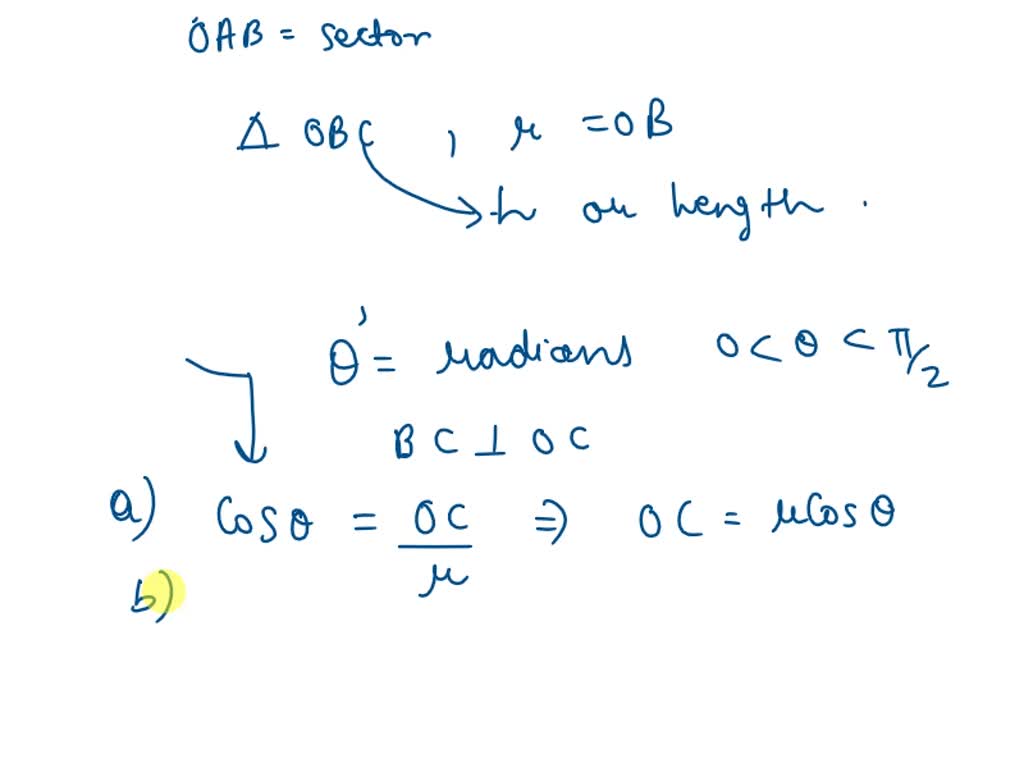 OAB = sector
Δ OBC , r = OB
→ h or length .
θ' = radians 0 < θ < π/2
BC ⊥ OC
a) Cosθ = OC/r ⇒ OC = rCosθ
b)